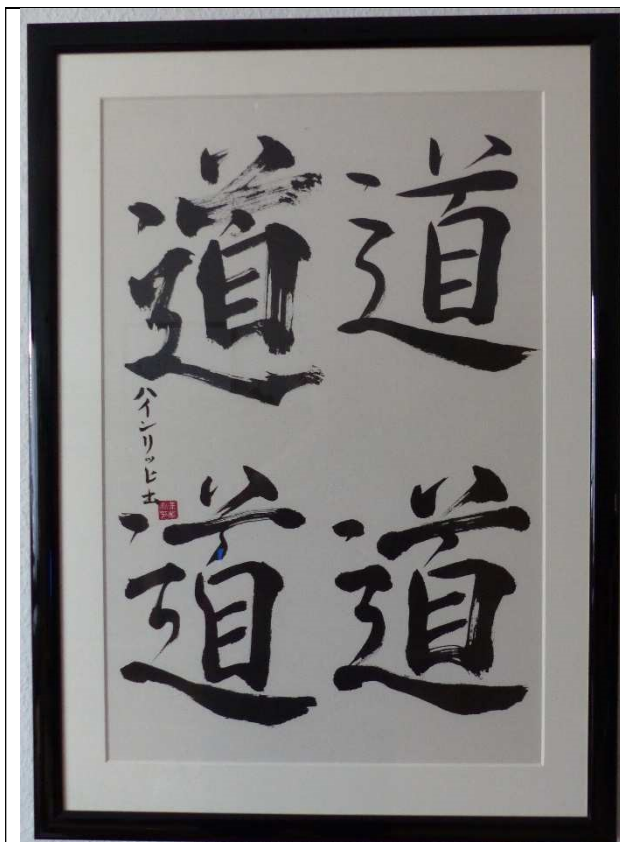 道道
道道
ハインリッヒ